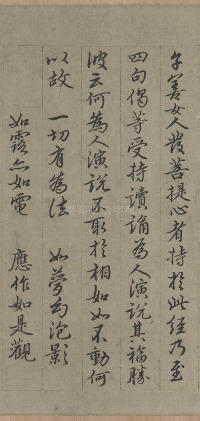 子善女人發菩提心者持於此經乃至
四句偈等受持讀誦為人演說其福勝
彼云何為人演說不取於相如如不動何
以故　一切有為法　如夢幻泡影
如露亦如電　應作如是觀